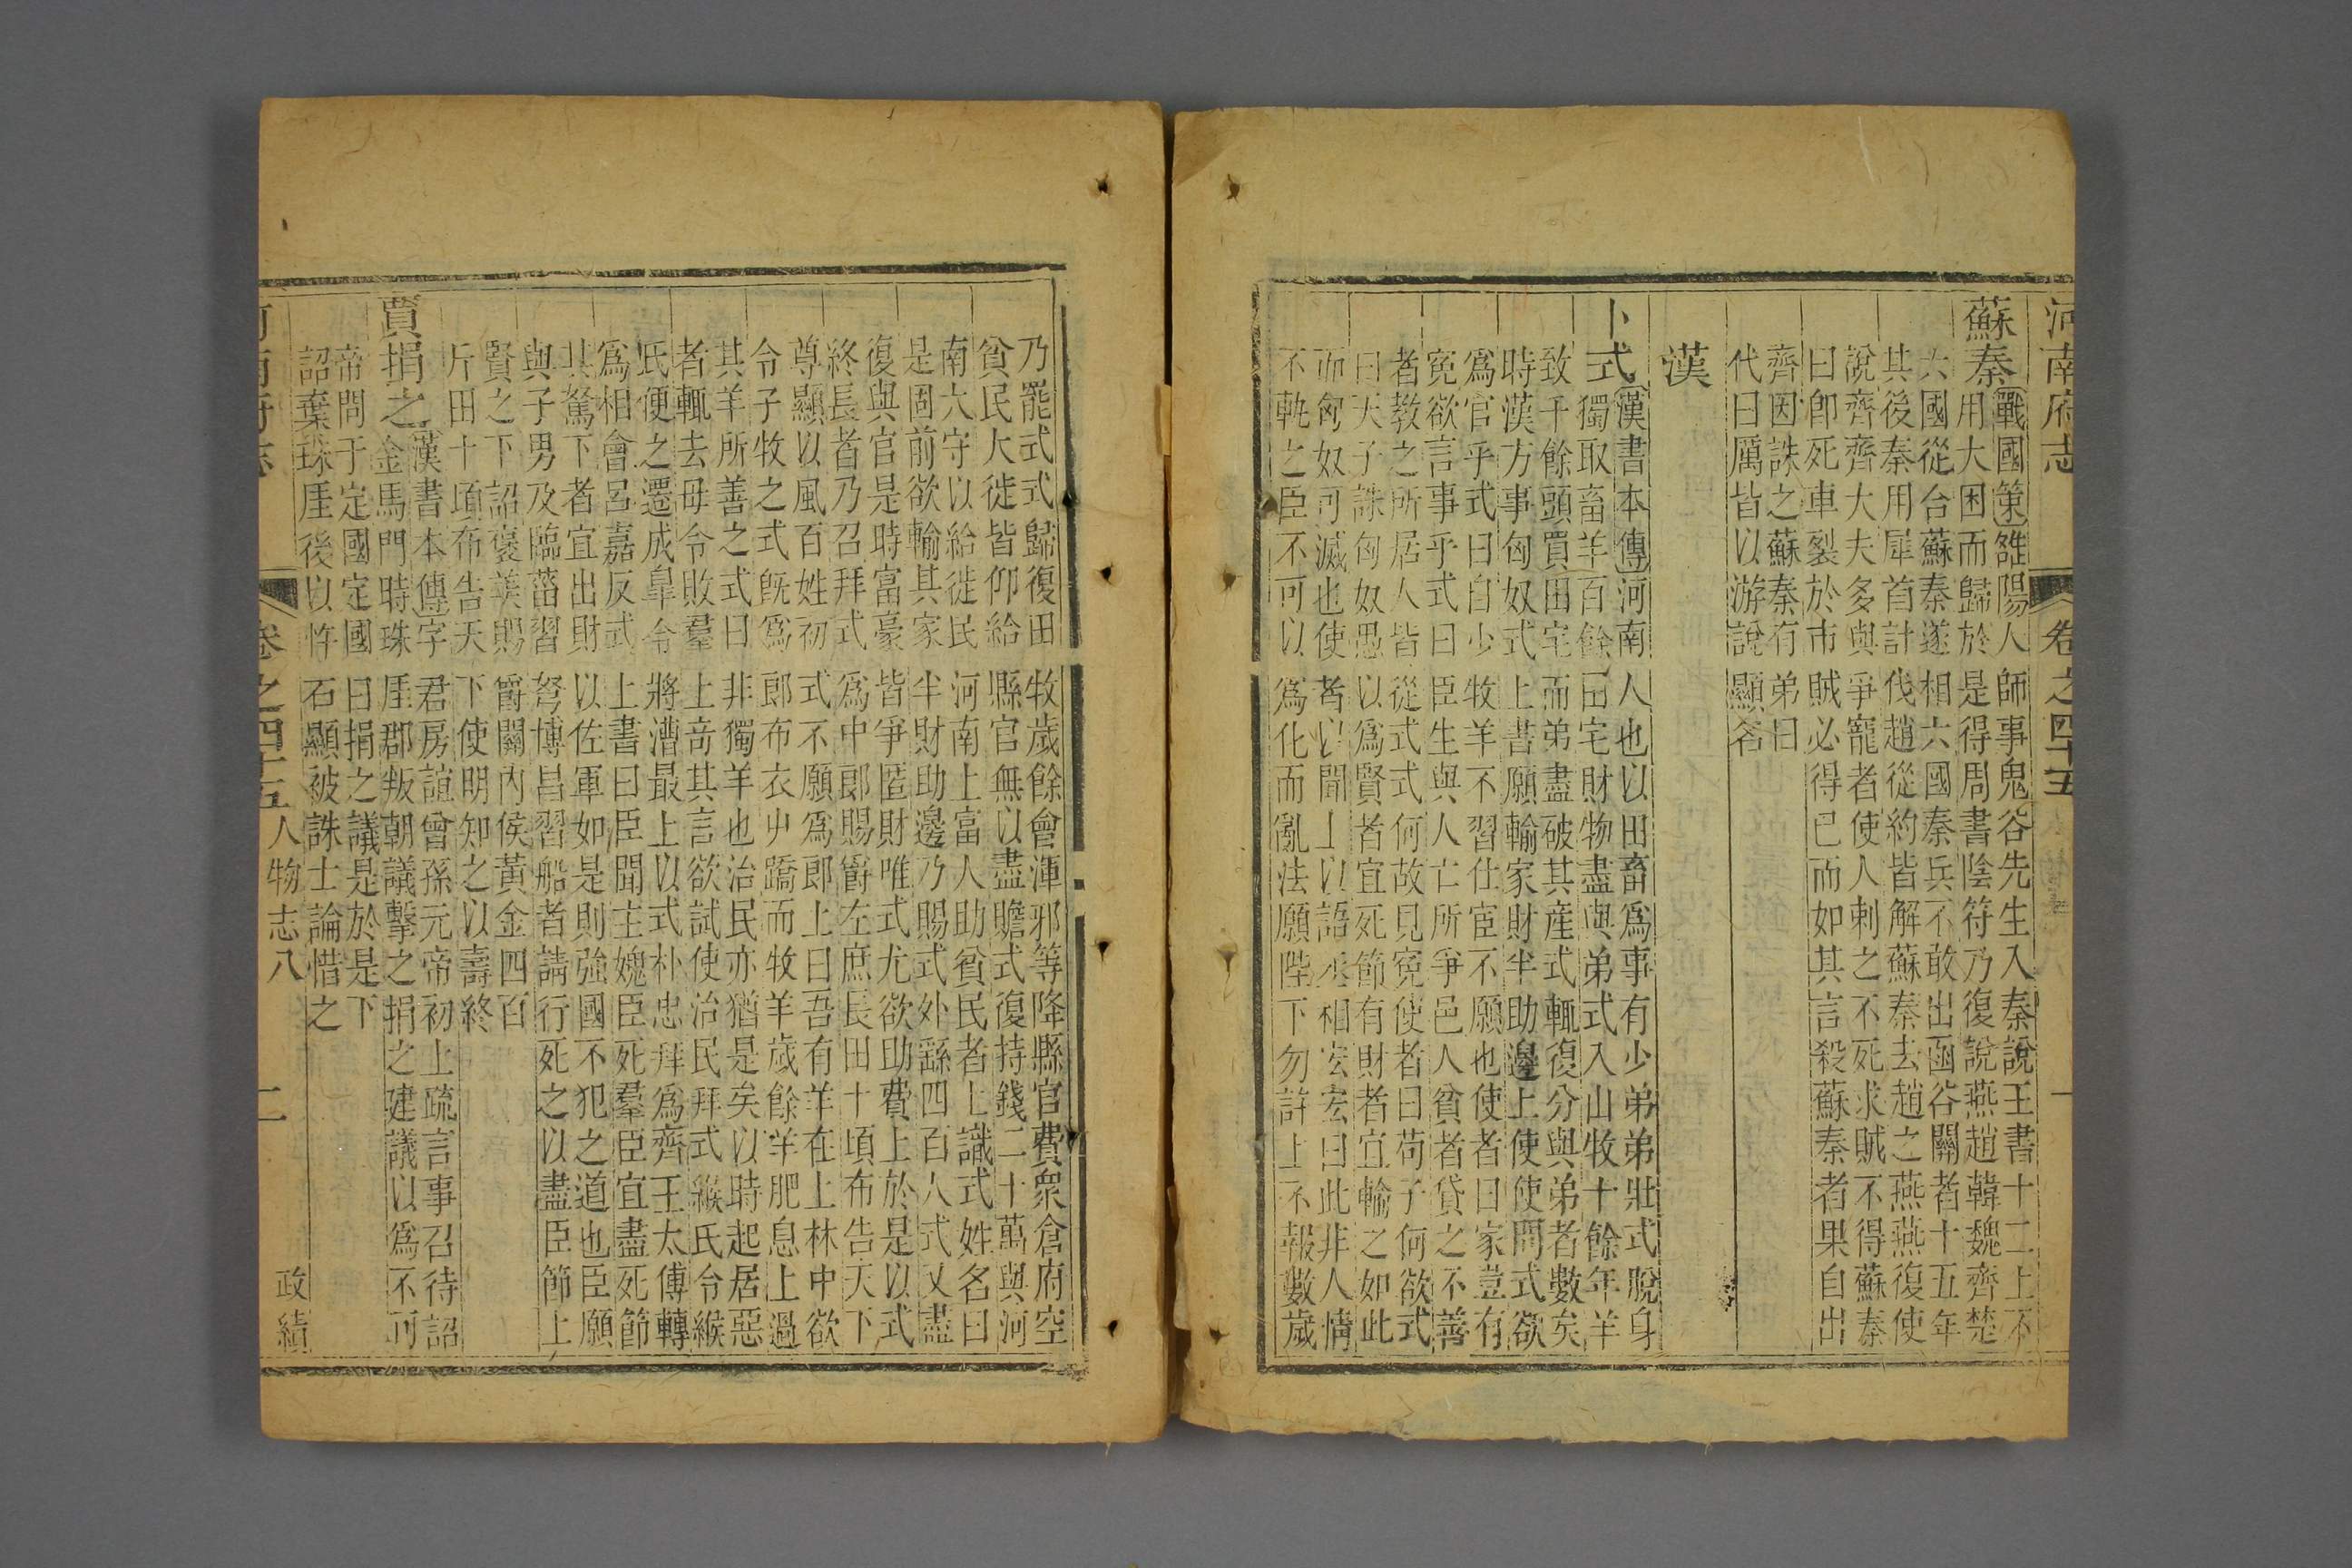 河南府志 卷之四十五 一
蘇秦
戰國策雒陽人師事鬼谷先生入秦說王書十二上不
用大困而歸於是得周書陰符乃復說燕趙韓魏齊楚
六國從台蘇秦遂相六國秦兵不敢出函谷關者十五年
其後秦用犀首計伐趙從約皆解蘇秦去趙之燕燕復使
說齊齊大夫多與爭寵者使人刺之不死求賊不得蘇秦
曰卽死車裂於市賊必得已而如其言殺蘇秦者果自出
齊因誅之蘇秦有弟曰
代曰厲皆以游說顯名
漢
卜式
漢書本傳河南人也以田畜爲事有少弟弟壯式脫身
獨取畜羊百餘田宅財物盡與弟式入山牧十餘年羊
致千餘頭買田宅而弟盡破其產式輒復分與弟者數矣
時漢方事匈奴式上書願輸家財半助邊上使使問式欲
爲官乎式曰自少牧羊不習仕宦不願也使者曰家豈有
冤欲言事乎式曰臣生與人亡所爭邑人貧者貸之不善
者教之所居人皆從式式何故見冤使者曰苟子何欲式
曰天子誅匈奴愚以爲賢者宜死節有財者宜輸之如此
而匈奴可滅也使者以聞上以語丞相宏宏曰此非人情
不軌之臣不可以爲化而亂法願陛下勿許上不報數歲
乃罷式式歸復田牧歲餘會渾邪等降縣官費衆倉府空
貧民大徙皆仰給縣官無以盡贍式復持錢二十萬與河
南大守以給徙民河南上富人助貧民者上識式姓名曰
是固前欲輸其家半財助邊乃賜式外繇四百人式又盡
復與官是時富豪皆爭匿財唯式尤欲助費上於是以式
終長者乃召拜式爲中郎賜爵左庶長田十頃布告天下
尊顯以風百姓初式不願爲郎上曰吾有羊在上林中欲
令子牧之式旣爲郎布衣屮蹻而牧羊歲餘羊肥息上過
其羊所善之式曰非獨羊也治民亦猶是矣以時起居惡
者輒去毋令敗羣上奇其言欲試使治民拜式緱氏令緱
氏便之遷成臯令將漕最上以式朴忠拜爲齊王太傅轉
爲相會呂嘉反式上書曰臣聞主媿臣死羣臣宜盡死節
其駑下者宜出財以佐軍如是則強國不犯之道也臣願
與子男及臨菑習弩博昌習船者請行死之以盡臣節上
賢之下詔襃美賜爵關內侯黃金四百
斤田十頃布告天下使明知之以壽終
賈捐之
漢書本傳字君房誼曾孫元帝初上疏言事召待詔
金馬門時珠厓郡叛朝議擊之捐之建議以爲不可
帝問于定國定國曰捐之議是於是下
詔棄珠厓後以忤石顯被誅士論惜之
河南府志 卷之四十五 人物志八 二 政績